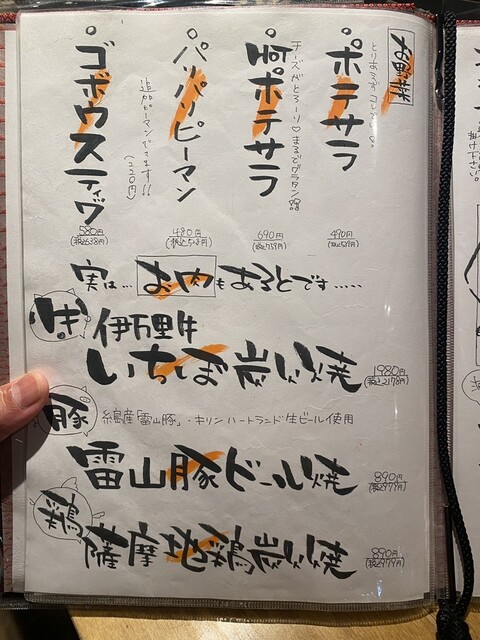 お野菜
とりあえずコレ
ポテサラ
490円
(税込539円)
チーズがとろーり♡まるでグラタン
ポテサラ
690円
(税込759円)
パリパリピーマン
追加ピーマンできます!!
(220円)
480円
(税込528円)
ゴボウスティック
580円
(税込638円)
実は…お肉もあるとです……
牛
伊万里牛
いちぼ炭火焼
1980円
(税込2178円)
豚
糸島産「雷山豚」・キリンハートランド生ビール使用
雷山豚ビール焼
890円
(税込979円)
鶏
薩摩地鶏炭火焼
890円
(税込979円)